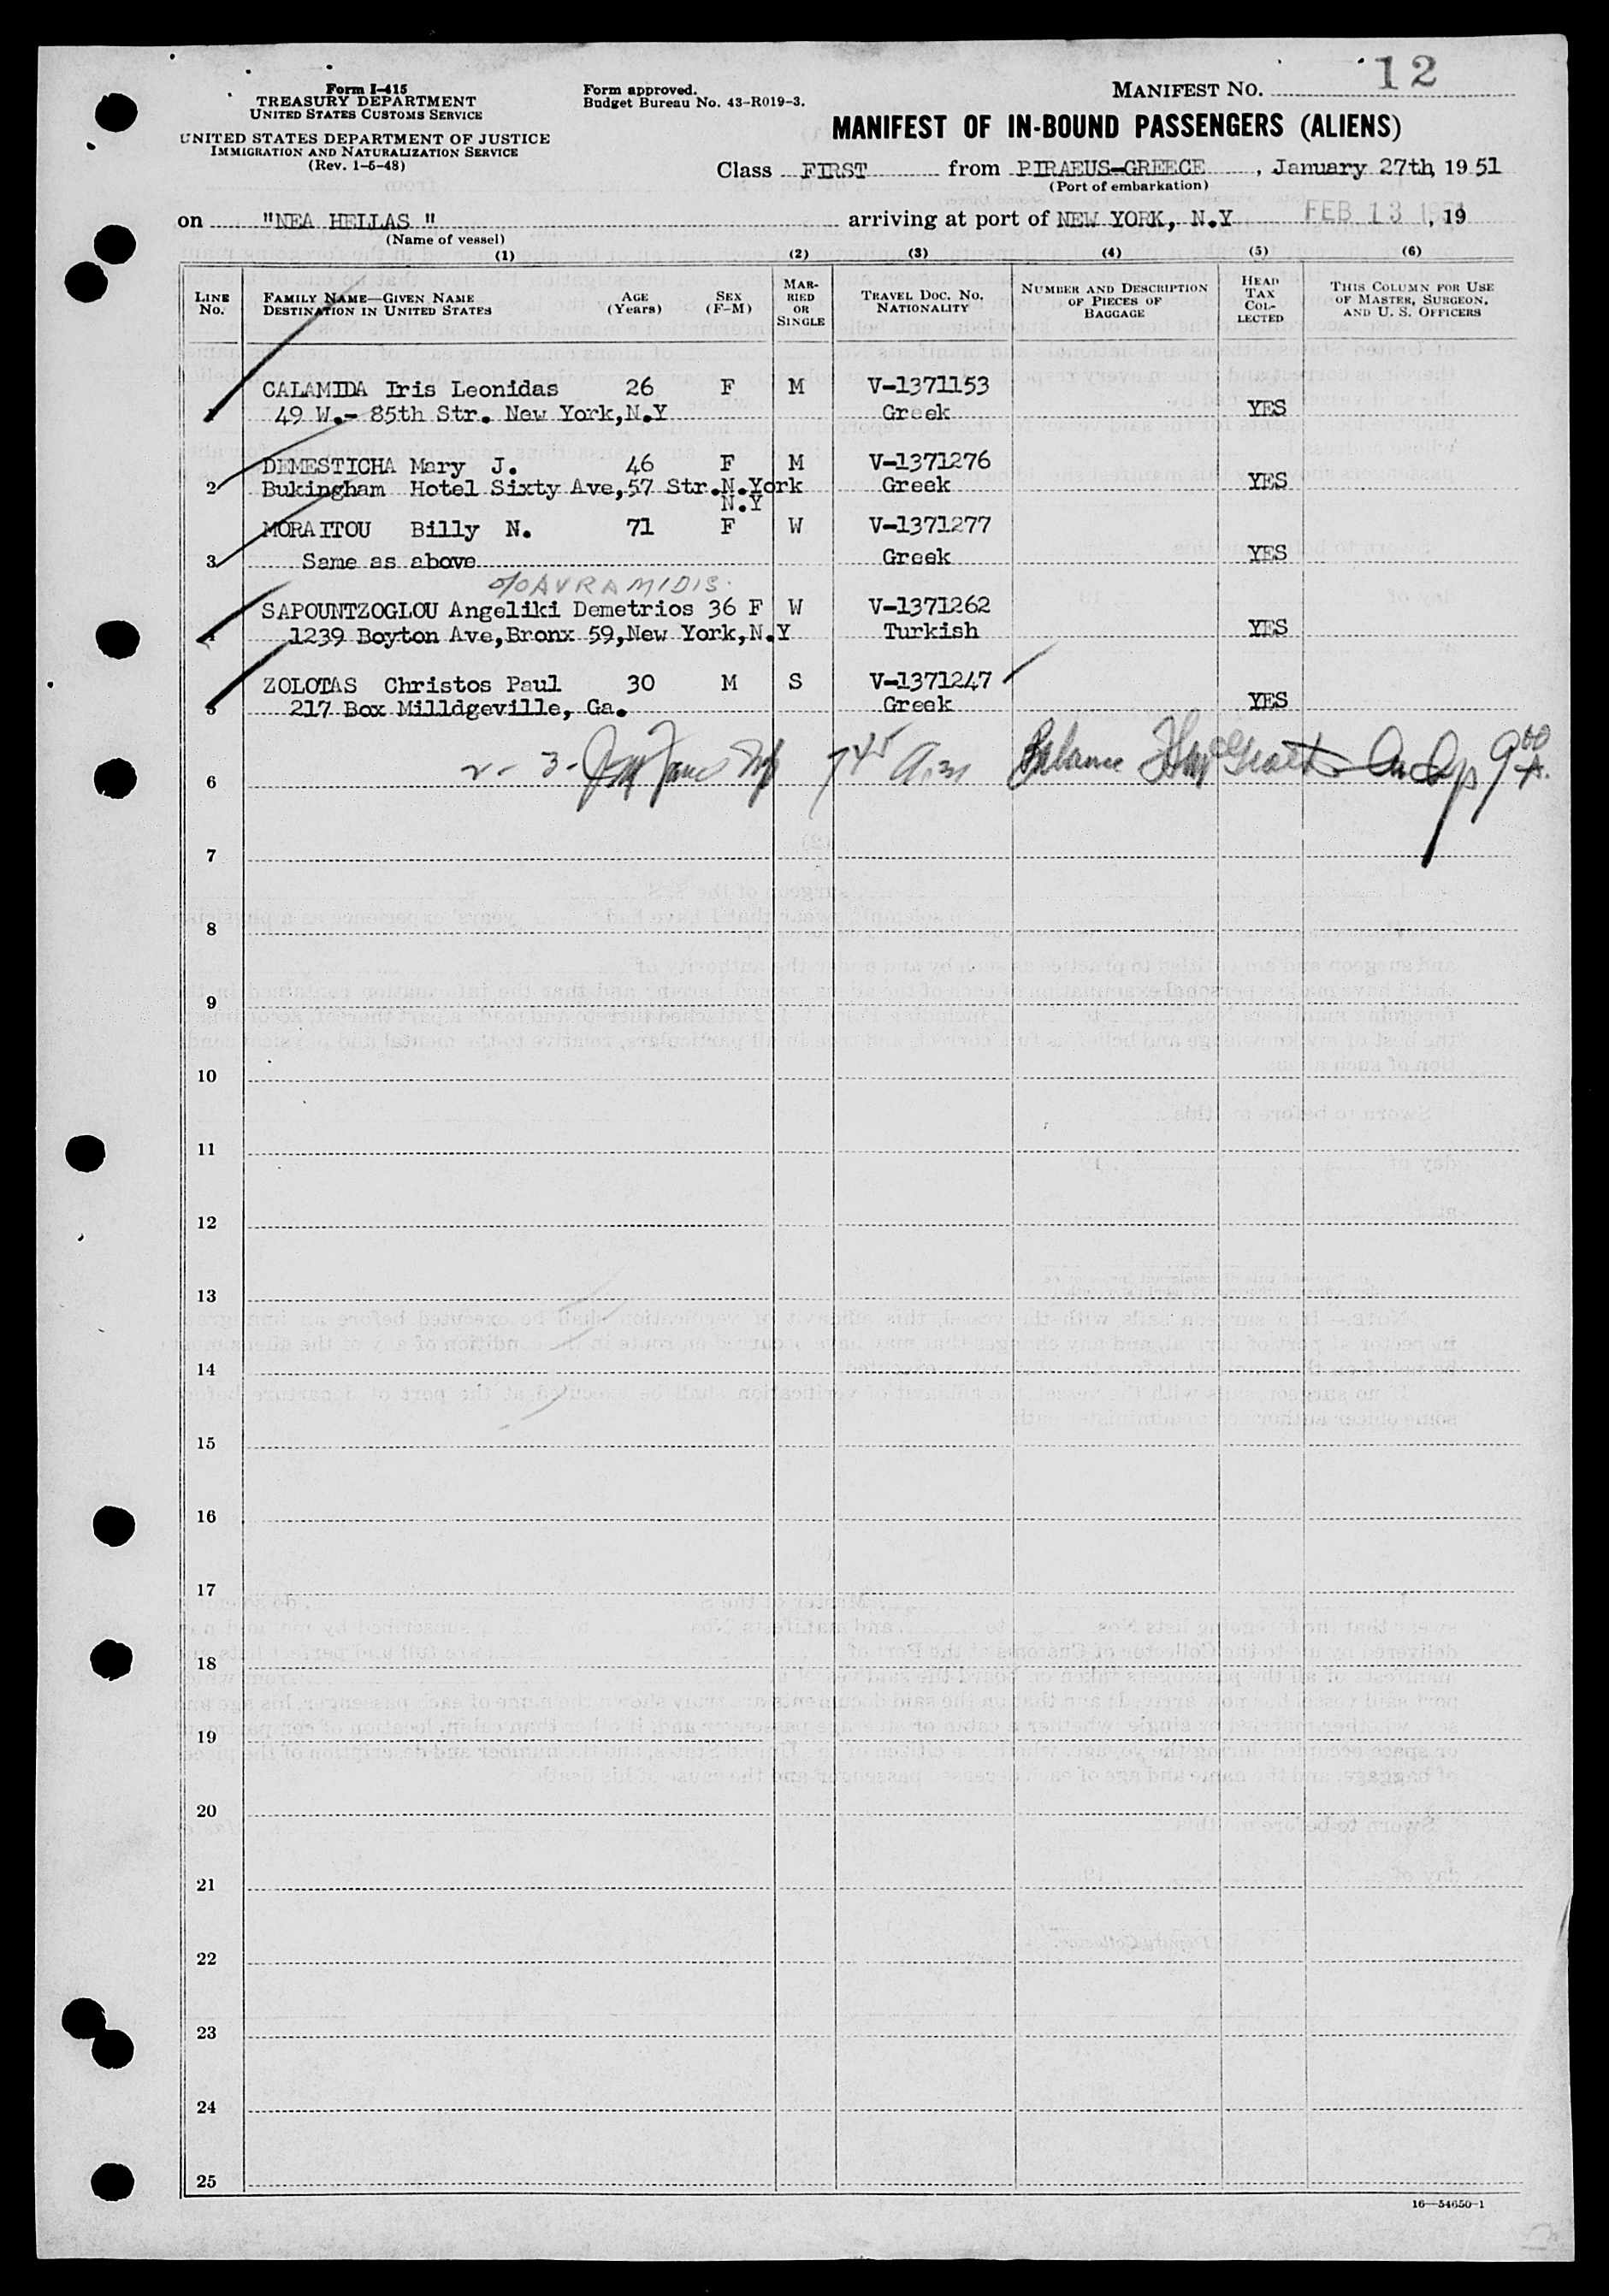 12
Form I-415
TREASURY DEPARTMENT
UNITED STATES CUSTOMS SERVICE
UNITED STATES DEPARTMENT OF JUSTICE
IMMIGRATION AND NATURALIZATION SERVICE
(Rev. 1-5-48)
Form approved.
Budget Bureau No. 43-R019-3.
MANIFEST NO.
MANIFEST OF IN-BOUND PASSENGERS (ALIENS)
Class FIRST from PIRAEUS-GREECE, January 27th, 1951
(Port of embarkation)
on "NEA HELLAS " arriving at port of NEW YORK, N.Y FEB 13 1951, 19
(Name of vessel)
(1) (2) (3) (4) (5) (6)
LINE No. FAMILY NAME—GIVEN NAME DESTINATION IN UNITED STATES AGE (Years) SEX (F-M) MARRIED OR SINGLE TRAVEL DOC. NO. NATIONALITY NUMBER AND DESCRIPTION OF PIECES OF BAGGAGE HEAD TAX COLLECTED THIS COLUMN FOR USE OF MASTER, SURGEON, AND U. S. OFFICERS
CALAMIDA Iris Leonidas 26 F M V-1371153
1 49 W.- 85th Str. New York,N.Y Greek YES
DEMESTICHA Mary J. 46 F M V-1371276
2 Bukingham Hotel Sixty Ave,57 Str.N.York Greek YES
N.Y
MORAITOU Billy N. 71 F W V-1371277
3 Same as above Greek YES
c/o AVRAMIDIS.
SAPOUNTZOGLOU Angeliki Demetrios 36 F W V-1371262
4 1239 Boyton Ave,Bronx 59,New York,N.Y Turkish YES
ZOLOTAS Christos Paul 30 M S V-1371247
5 217 Box Milldgeville, Ga. Greek YES
2 - 3 - 7 45 A.m Balance 9 00 A.
6
7
8
9
10
11
12
13
14
15
16
17
18
19
20
21
22
23
24
25
16—54650-1